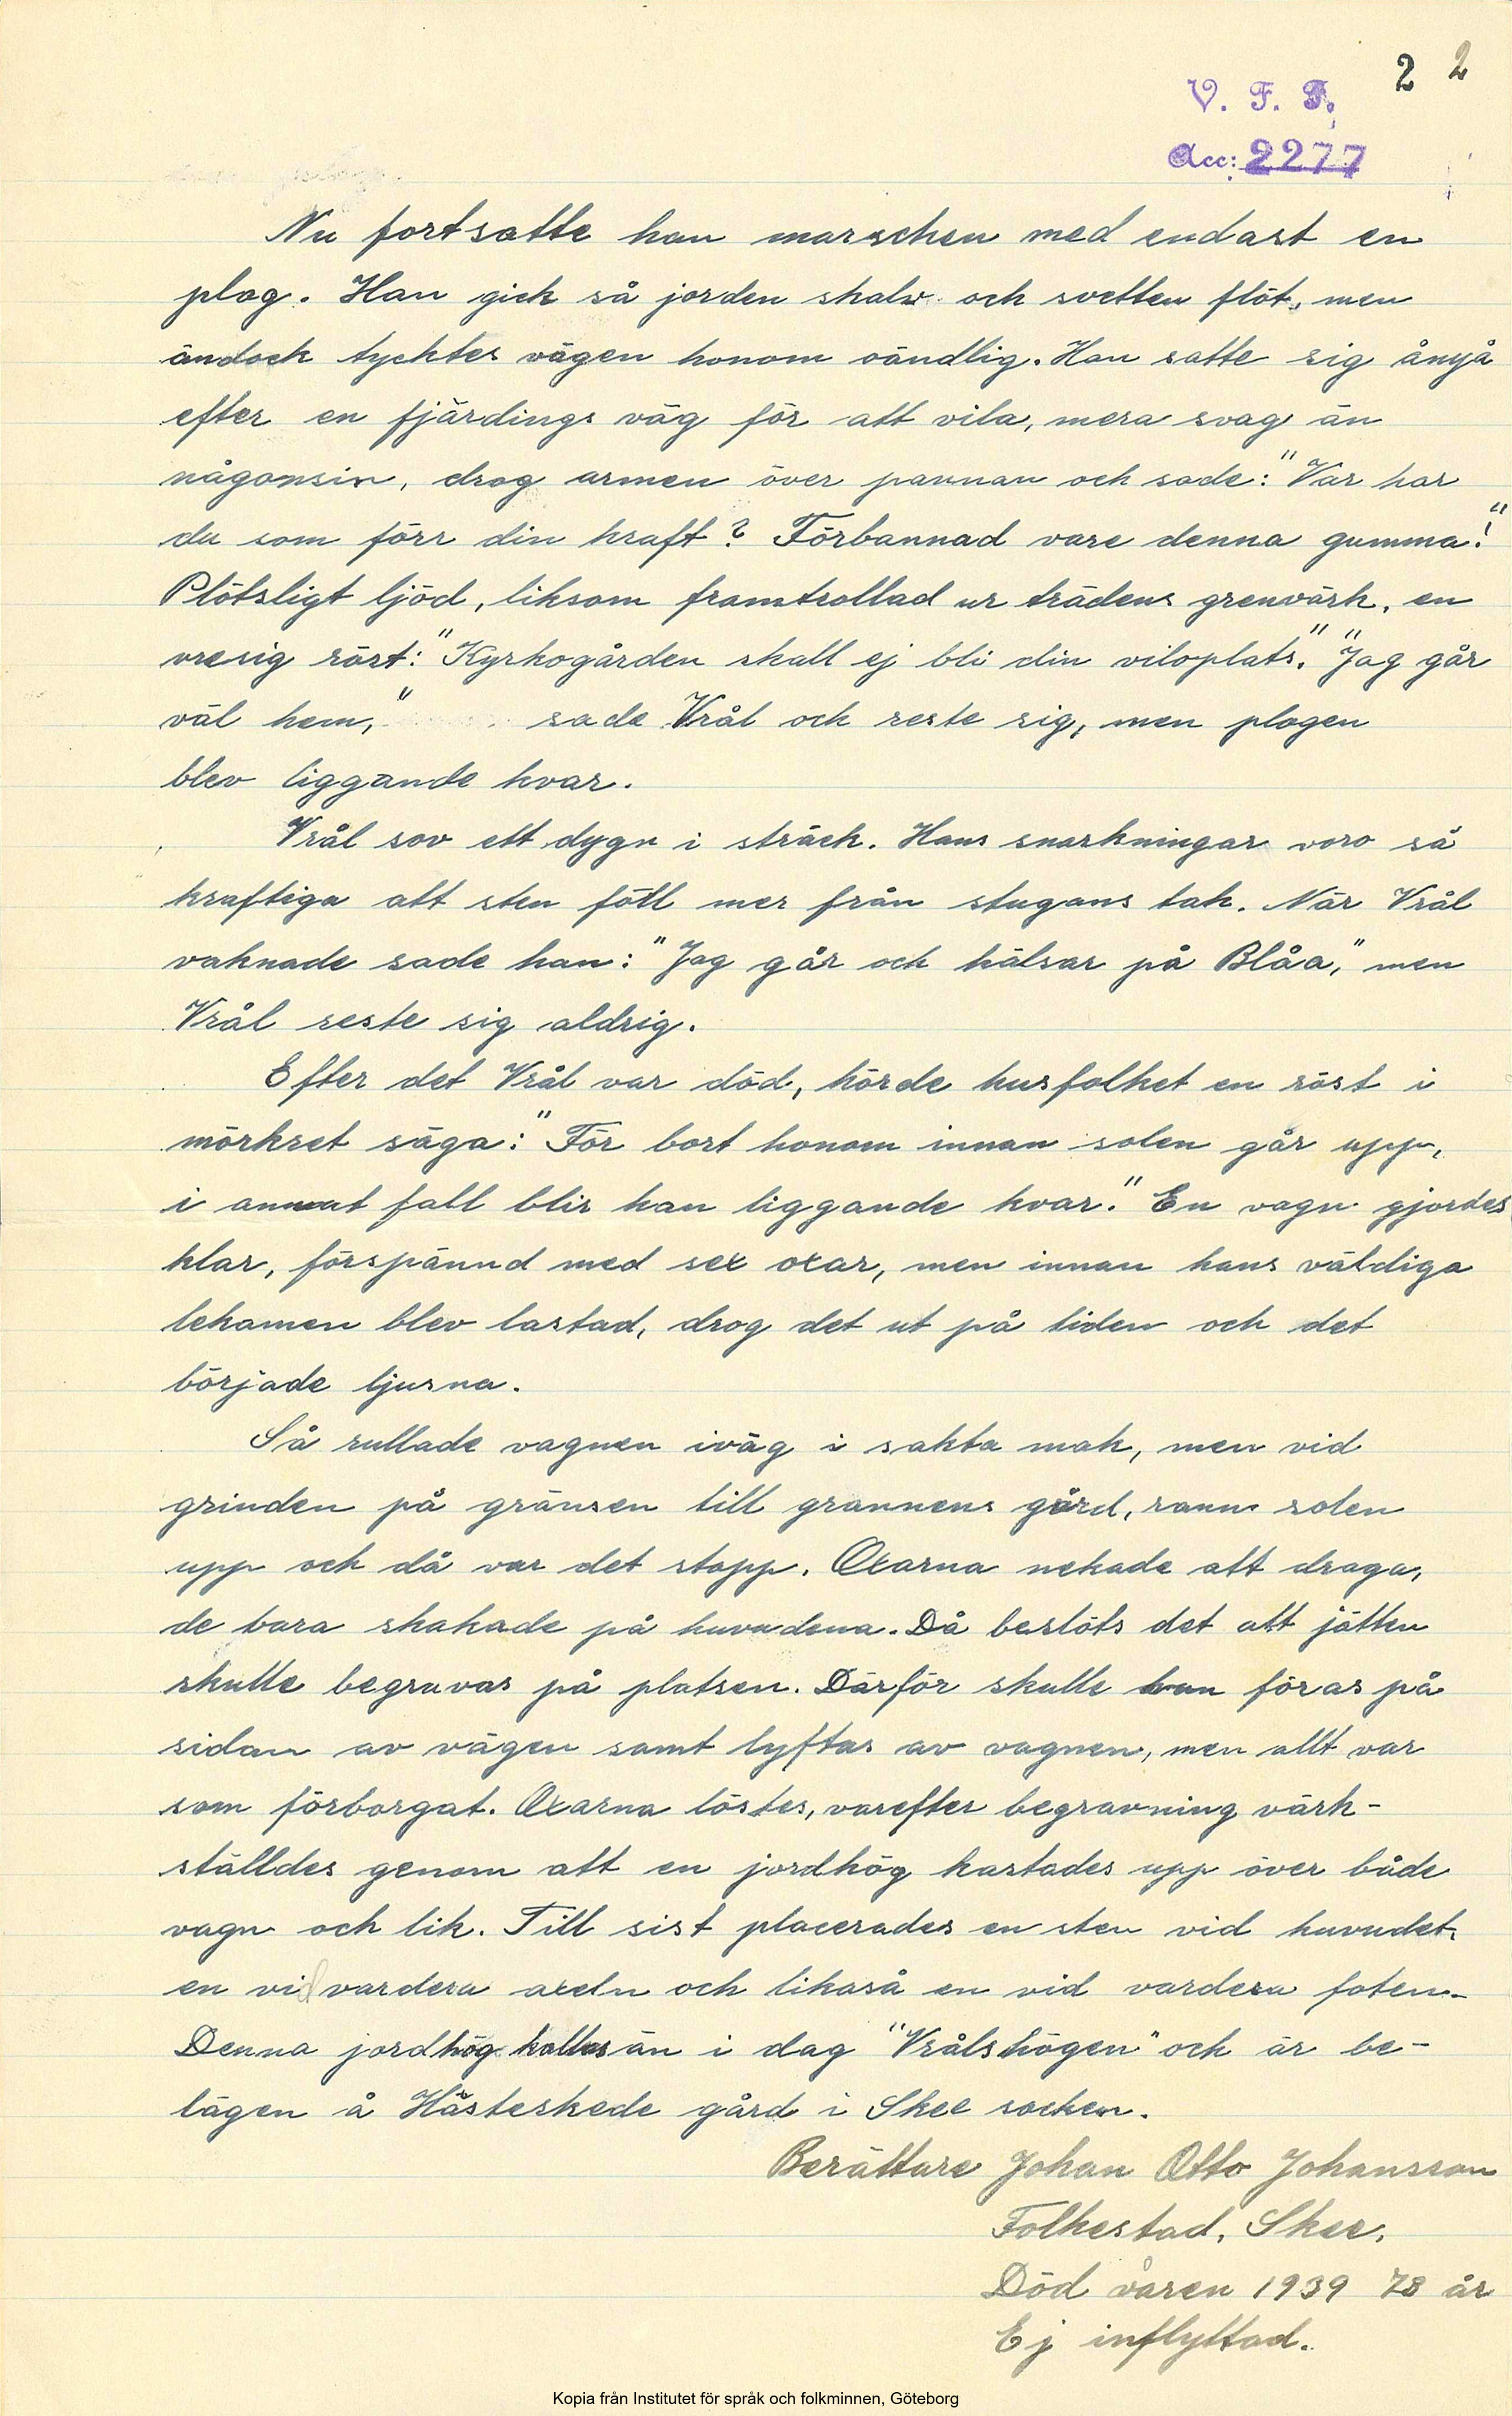 2 2
V. F. F.
Acc: 2277
Nu fortsatte han marschen med endast en
plog. Han gick så jorden skalv och svetten flöt, men
ändock tycktes vägen honom oändlig. Han satte sig ånyå
efter en fjärdings väg för att vila, mera svag än
någonsin, drog armen över pannan och sade: "Var har
du som förr din kraft? Förbannad vare denna gumma!"
Plötsligt ljöd, liksom framtrollad ur trädens grenvärk, en
vresig röst: "Kyrkogården skall ej bli din viloplats." "Jag går
väl hem," sade Vrål och reste sig, men plogen
blev liggande kvar.
Vrål sov ett dygn i sträck. Hans snarkningar voro så
kraftiga att sten föll mer från stugans tak. När Vrål
vaknade sade han: "Jag går och hälsar på Blåa," men
Vrål reste sig aldrig.
Efter det Vrål var död, hörde husfolket en röst i
mörkret säga: "För bort honom innan solen går upp,
i annat fall blir han liggande kvar." En vagn gjordes
klar, förspännd med sex oxar, men innan hans väldiga
lekamen blev lastad, drog det ut på tiden och det
började ljusna.
Så rullade vagnen iväg i sakta mak, men vid
grinden på gränsen till grannens gård, rann solen
upp och då var det stopp. Oxarna nekade att draga,
de bara skakade på huvudena. Då beslöts det att jätten
skulle begravas på platsen. Därför skulle han föras på
sidan av vägen samt lyftas av vagnen, men allt var
som förborgat. Oxarna löstes, varefter begravning värk-
ställdes genom att en jordhög kastades upp över både
vagn och lik. Till sist placerades en sten vid huvudet,
en vid vardera axeln och likaså en vid vardera foten.
Denna jordhög kallas än i dag "Vrålshögen" och är be-
lägen å Hästeskede gård i Skee socken.
Berättare Johan Otto Johansson
Folkestad, Skee,
Död våren 1939 78 år
Ej inflyttad.
Kopia från Institutet för språk och folkminnen, Göteborg